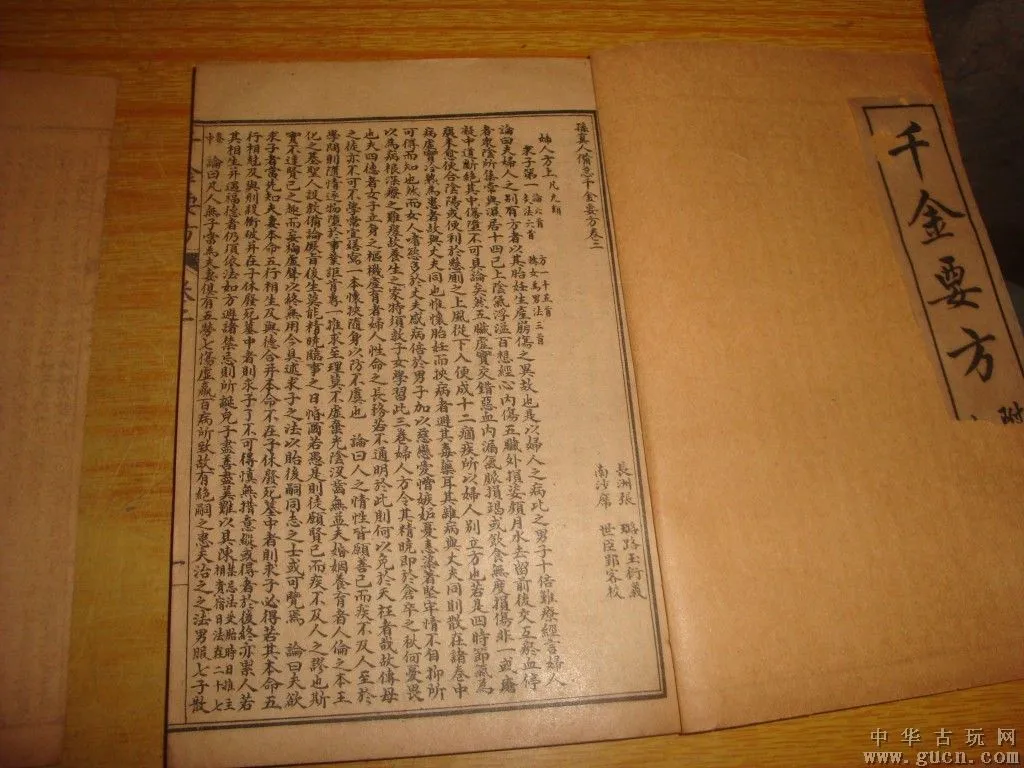 千金要方
附
孫真人備急千金要方卷二
長洲張 璐路玉衍義
南沙席 世臣郢客校
婦人方上凡九類
求子第一 論六首 方一十五首
灸法六首 轉女為男法三首
論曰夫婦人之別有方者以其胎妊生產崩傷之異故也是以婦人之病比之男子十倍難療經言婦人
者衆陰所集常與濕居十四已上陰氣浮溢百想經心內傷五臟外損姿顏月水去留前後交互瘀血停
凝中道斷絕其中傷墮不可具論矣然五臟虛實交錯惡血內漏氣脈損竭或飲食無度損傷非一或瘡
痍未愈便合陰陽或便利於懸廁之上風從下入便成十二痼疾所以婦人別立方也若是四時節氣為
病虛實冷熱為患者故與丈夫同也惟懷胎妊而挾病者避其毒藥耳其雜病與丈夫同則散在諸卷中
可得而知也然而女人嗜慾多於丈夫感病倍於男子加以慈戀愛憎嫉妒憂恚染著堅牢情不自抑所
以為病根深療之難瘥故養生之家特須教子女學習此三卷婦人方令其精曉即於倉卒之秋何憂畏
也夫四德者女子立身之樞機產育者婦人性命之長務若不通明於此則何以免於夭枉者哉故傅母
之徒亦不可不學常宜繕寫一本懷挾隨身以防不虞也 論曰人之情性皆願善己而疾不及人至於
學問則隨情逐物墮於事業詎肯專一推求至理莫不虛棄光陰沒齒無益夫婚姻養育者人倫之本王
化之基聖人設教備論厥旨後生莫能精曉臨事之日惛爾若愚是則徒願賢己而疾不及人之謬也斯
實不達賢己之趣而妄徇虛聲以終無用今具述求子之法以貽後嗣同志之士或可覽焉 論曰夫欲
求子者當先知夫妻本命五行相生及與德合并本命不在子休廢死墓中者則求子必得若其本命五
行相尅及與刑殺衝破并在子休廢死墓中者則求子了不可得慎無措意縱或得者於後終亦累人若
其相生并遇福德者仍須依法如方避諸禁忌則所誕兒子盡善盡美難以具陳禁忌法受胎時日推王相貴宿日法在二十七
卷中 論曰凡人無子當為夫妻俱有五勞七傷虛羸百病所致故有絕嗣之患夫治之之法男服七子散
金要方 卷二
一
中华古玩网
www.gucn.com